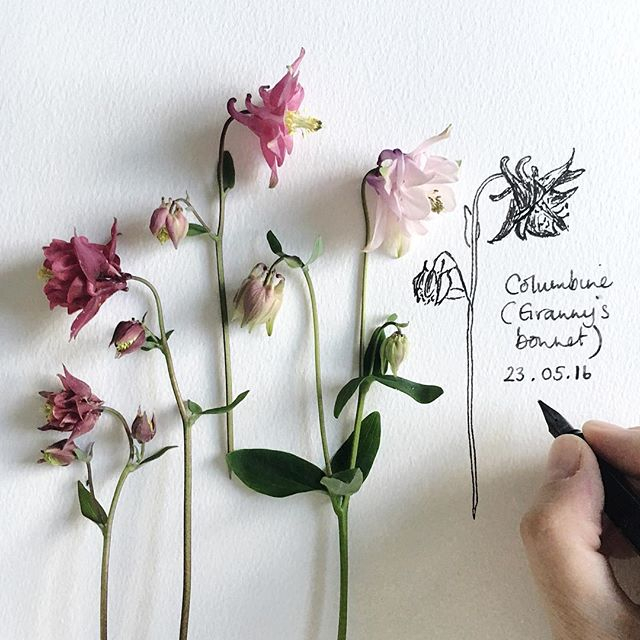 Columbine
(Granny's
bonnet)
23.05.16